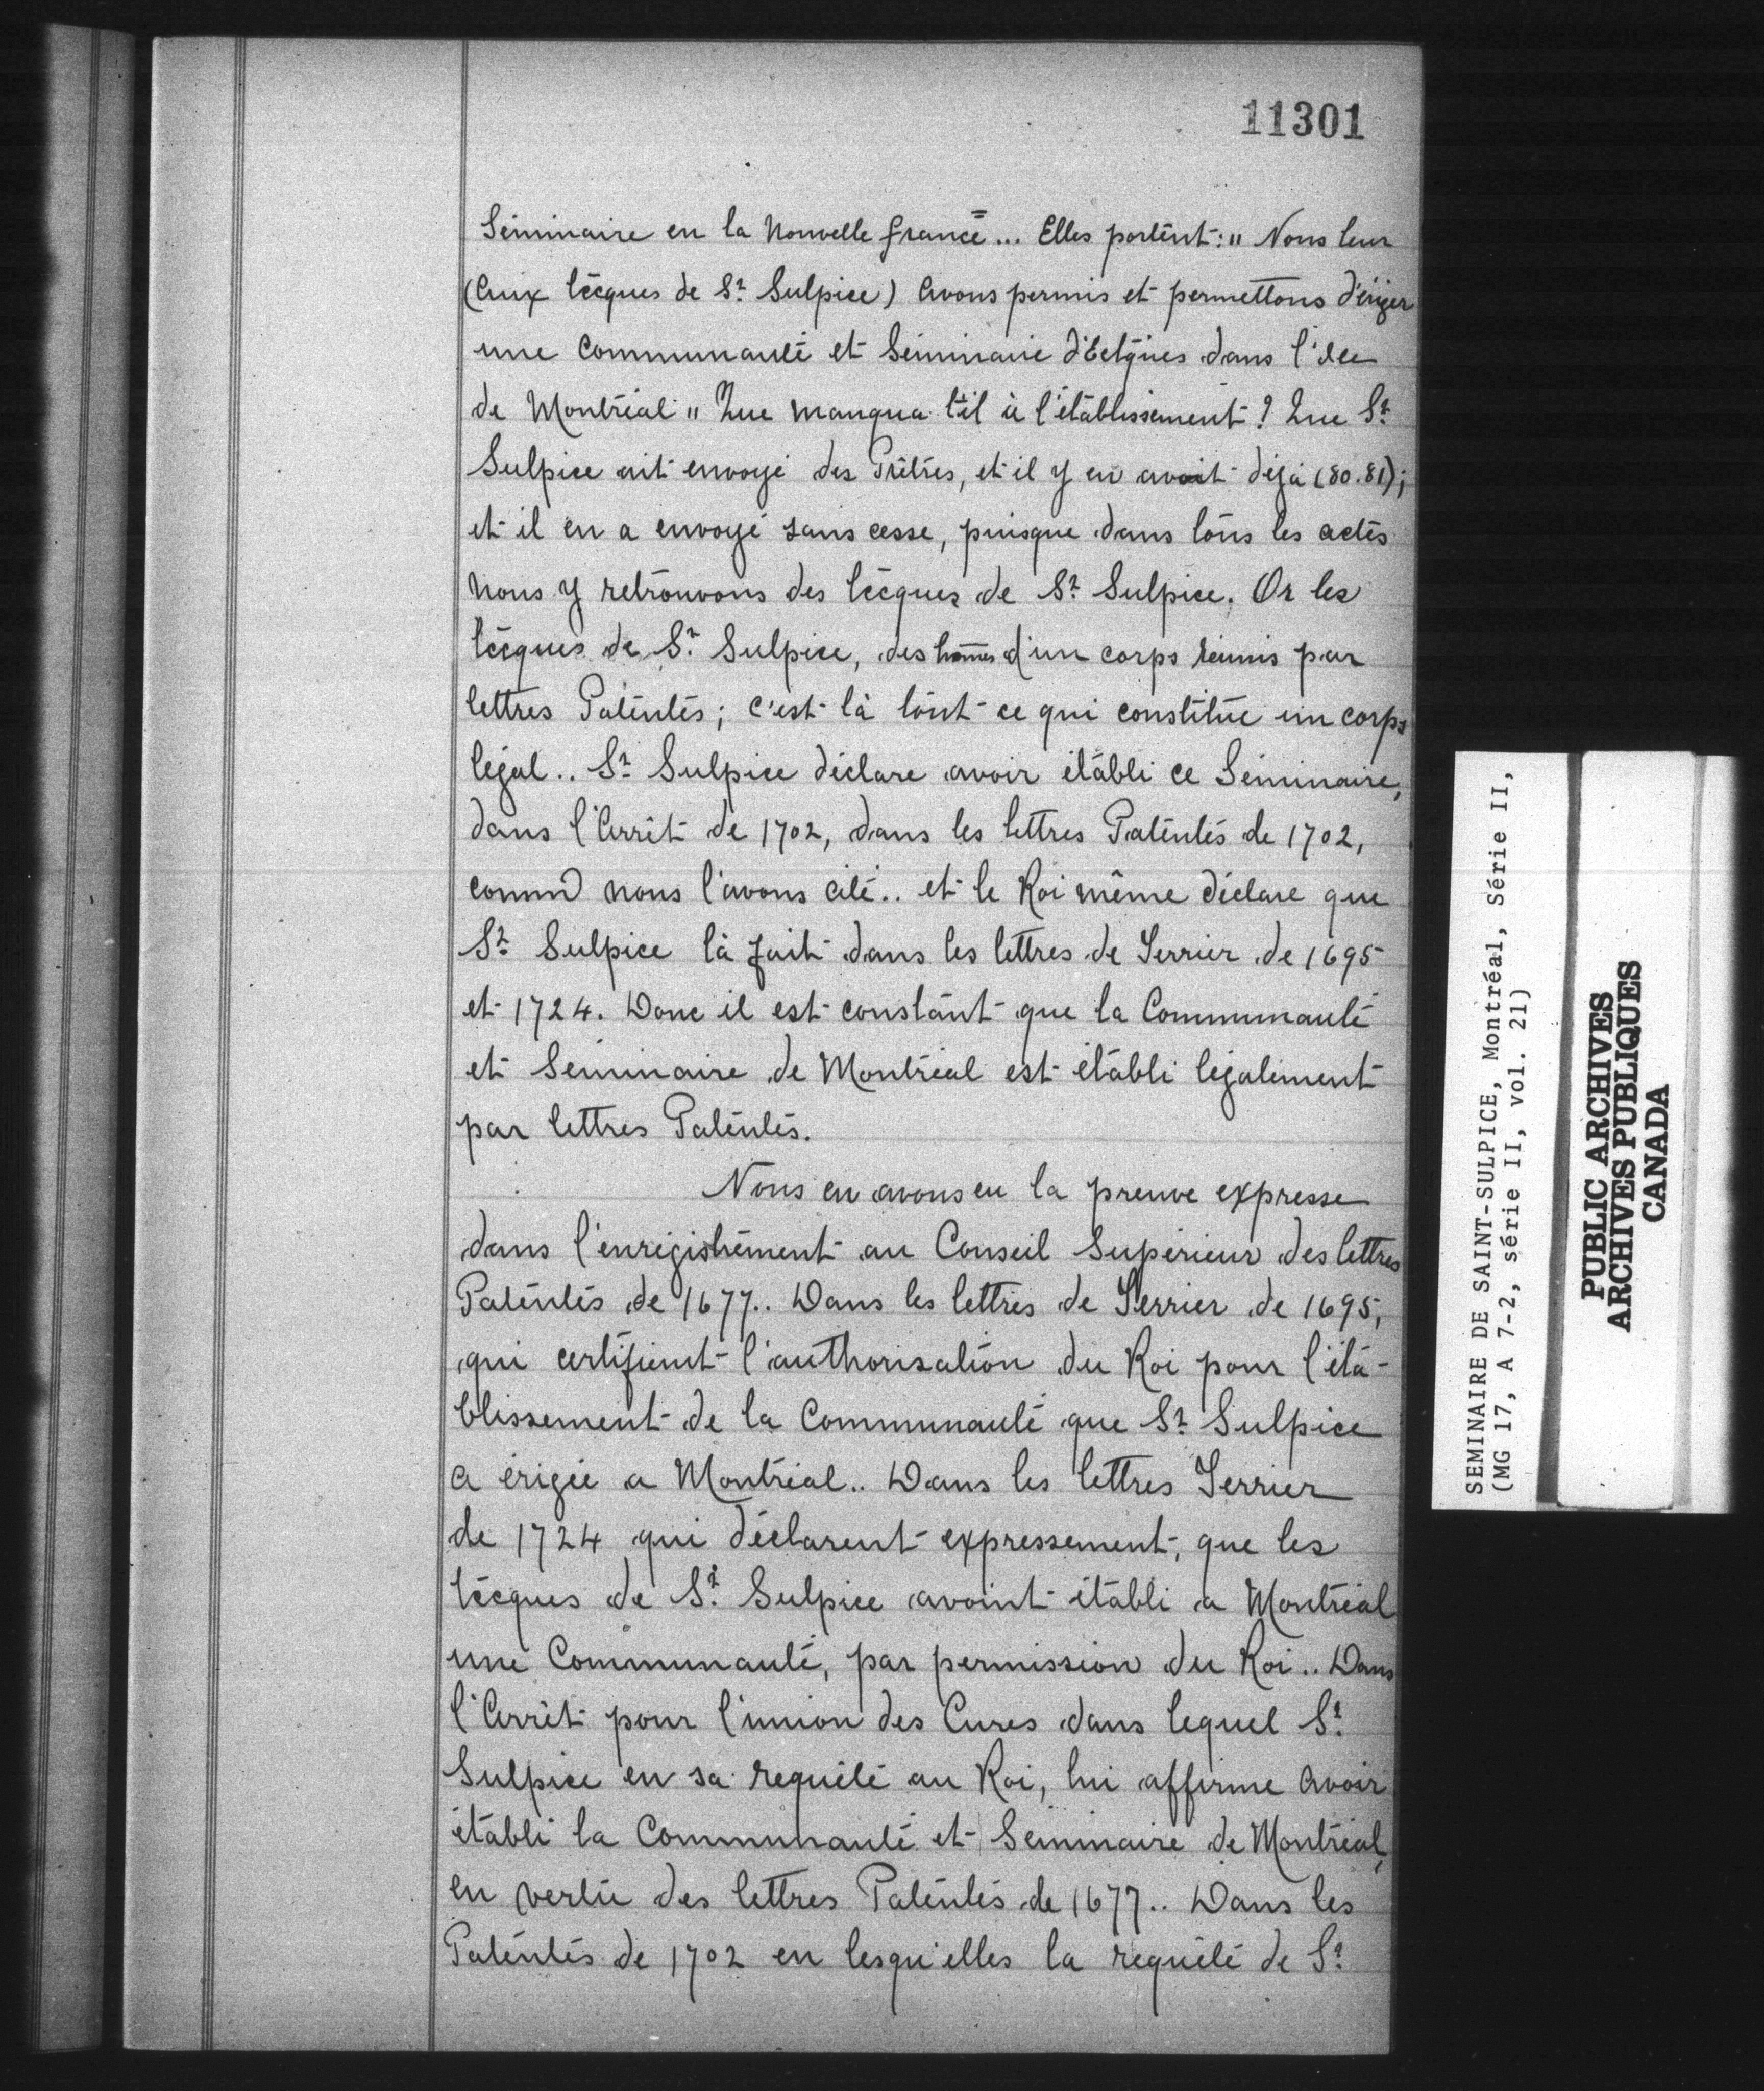 11301
Séminaire en la Nouvelle france... Elles portent: " Nous leur
(Aux Eécques de St Sulpice) Avons permis et permettons d'ériger
une Communauté et Séminaire d'Eclques dans l'Isle
de Montréal " Que manqua t'il à l'établissement ? Que St
Sulpice ait envoyé des Prêtres, et il y en avoit déjà (80.81);
et il en a envoyé sans cesse, puisque dans tous les actes
nous y retrouvons des Eécques de St Sulpice. Or les
Eécques de St Sulpice, des homes d'un corps réunis par
lettres Patentes ; c'est là tout ce qui constitue un corps
légal.. St Sulpice déclare avoir établi ce Séminaire,
dans l'Arrêt de 1702, dans les lettres Patentes de 1702,
comme nous l'avons cité.. et le Roi même déclare que
St Sulpice là fait dans les lettres de Terrier de 1695
et 1724. Donc il est constant que la Communauté
et Séminaire de Montréal est établi légalement
par lettres Patentes.
Nous en avons eu la preuve expresse
dans l'enrégistrement au Conseil Supérieur des lettres
Patentes de 1677.. Dans les lettres de Terrier de 1695,
qui certifient l'authorisation du Roi pour l'éta-
blissement de la Communauté que St Sulpice
a érigée a Montréal.. Dans les lettres Terrier
de 1724 qui déclarent expressement, que les
Eécques de St Sulpice avoint établi a Montréal
une Communauté, par permission du Roi.. Dans
l'Arrêt pour l'union des Cures dans lequel St
Sulpice en sa requête au Roi, lui affirme avoir
établi la Communauté et Séminaire de Montréal,
en vertu des lettres Patentes de 1677.. Dans les
Patentes de 1702 en lesqu'elles la requête de St
SEMINAIRE DE SAINT-SULPICE, Montréal, Série II,
(MG 17, A 7-2, série II, vol. 21)
PUBLIC ARCHIVES
ARCHIVES PUBLIQUES
CANADA